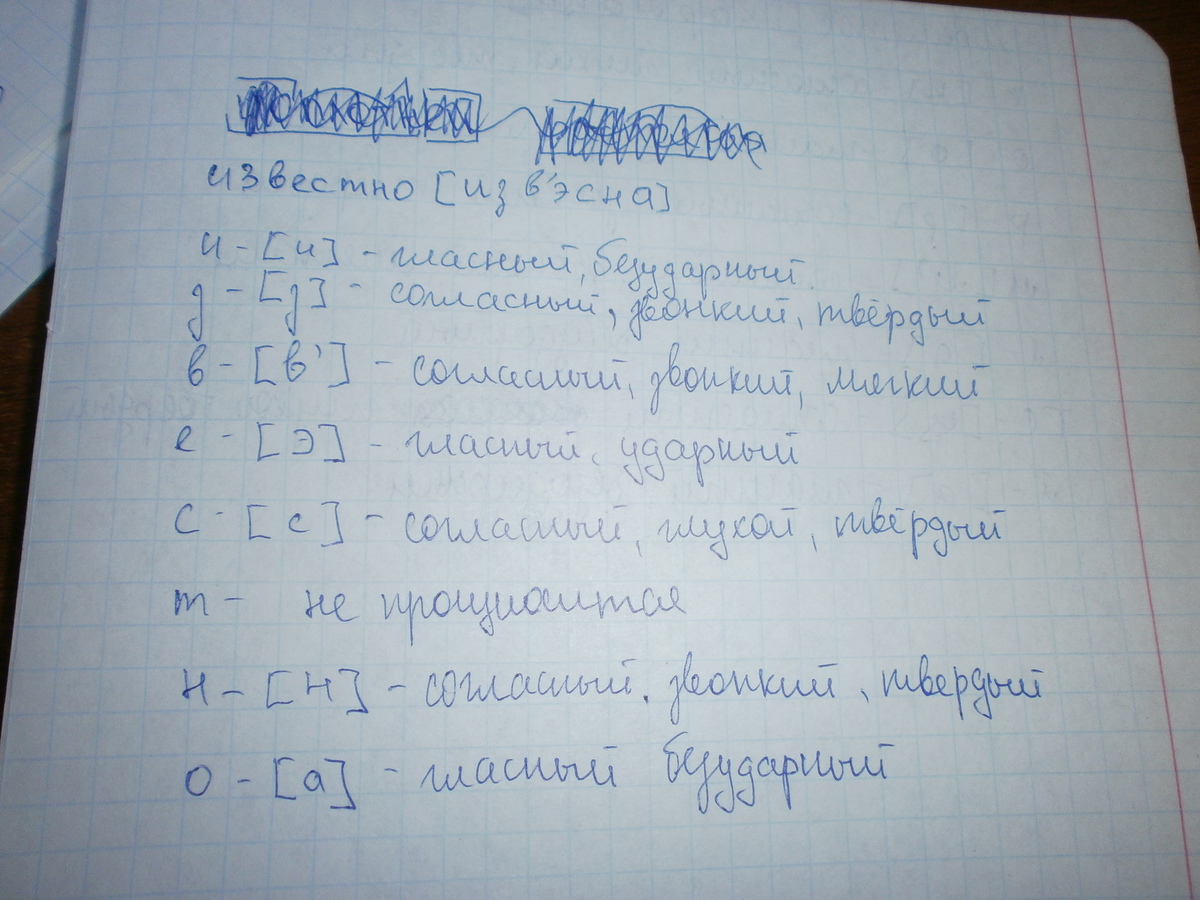 известно [из в'эсна]
и - [и] - гласный, безударный
з - [з] - согласный, звонкий, твёрдый
в - [в'] - согласный, звонкий, мягкий
е - [э] - гласный, ударный
с - [с] - согласный, глухой, твёрдый
т - не произносится
н - [н] - согласный, звонкий, твердый
о - [а] - гласный безударный